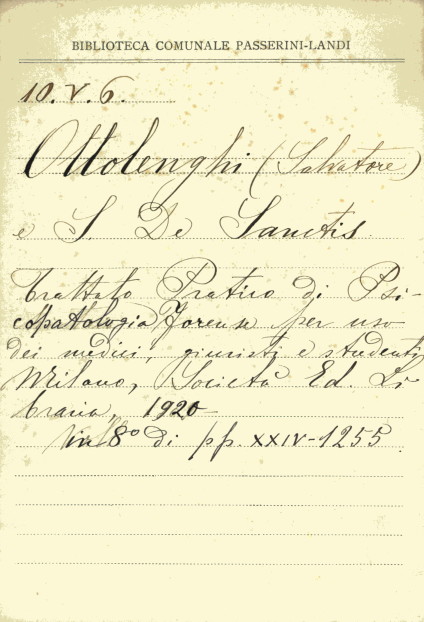 BIBLIOTECA COMUNALE PASSERINI-LANDI
10. V. 6.
Ottolenghi (Salvatore)
e S. De Sanctis
Trattato Pratico di Psi-
copatologia forense per uso
dei medici, giuristi e studenti
Milano, Società Ed. Li
braria, 1920
in 8° di pp. XXIV-1255.